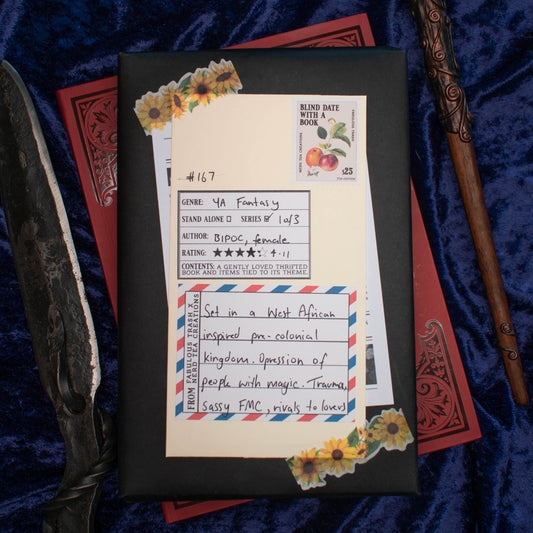 BLIND DATE
WITH A
BOOK
FABULOUS TRASH
NERD TEA CREATIONS
$25
#167
GENRE: YA Fantasy
STAND ALONE ☐ SERIES ☑ 1 of 3
AUTHOR: BIPOC, female
RATING: ★★★★☆ 4.11
CONTENTS: A GENTLY LOVED THRIFTED
BOOK AND ITEMS TIED TO ITS THEME.
FROM FABULOUS TRASH X
NERD TEA CREATIONS
Set in a West African
inspired pre-colonial
kingdom. Opression of
people with magic. Trauma,
sassy FMC, rivals to lovers